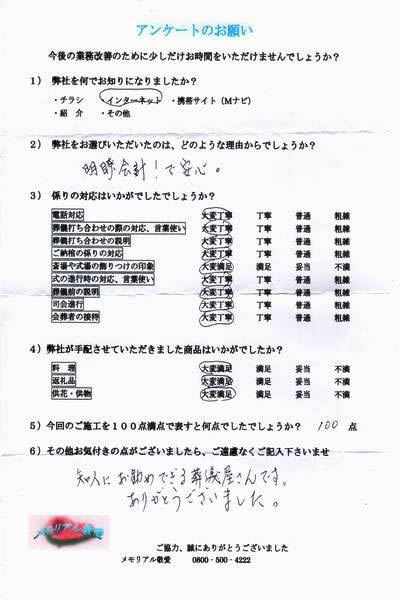 アンケートのお願い
今後の業務改善のために少しだけお時間をいただけませんでしょうか？
１）弊社を何でお知りになりましたか？
・チラシ ・インターネット ・携帯サイト（Mナビ）
・紹 介 ・その他
２）弊社をお選びいただいたのは、どのような理由からでしょうか？
明瞭会計！で安心。
３）係りの対応はいかがでしたでしょうか？
電話対応 大変丁寧 丁寧 普通 粗雑
葬儀打ち合わせの際の対応、言葉使い 大変丁寧 丁寧 普通 粗雑
葬儀打ち合わせの説明 大変丁寧 丁寧 普通 粗雑
ご納棺の係りの対応 大変丁寧 丁寧 普通 粗雑
斎場や式場の飾りつけの印象 大変満足 満足 妥当 不満
式の進行時の対応、言葉使い 大変丁寧 丁寧 普通 粗雑
葬儀前の説明 大変丁寧 丁寧 普通 粗雑
司会進行 大変丁寧 丁寧 普通 粗雑
会葬者の接待 大変丁寧 丁寧 普通 粗雑
４）弊社が手配させていただきました商品はいかがでしたか？
料 理 大変満足 満足 妥当 不満
返礼品 大変満足 満足 妥当 不満
供花・供物 大変満足 満足 妥当 不満
５）今回のご施工を１００点満点で表すと何点でしたでしょうか？ 100 点
６）その他お気付きの点がございましたら、ご遠慮なくご記入下さいませ
知人にお勧めできる葬儀屋さんです。
ありがとうございました。
メモリアル敬愛
ご協力、誠にありがとうございました
メモリアル敬愛 0800-500-4222